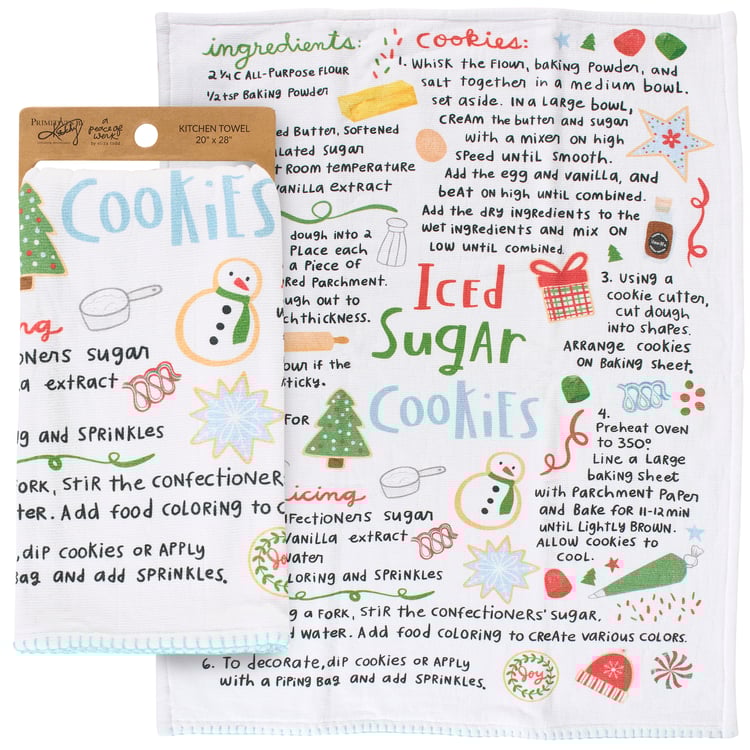 KITCHEN TOWEL
20" x 28"
a
peace of
work
by eliza todd
Cookies
ng
oners sugar
a extract
g and Sprinkles
ork, Stir the confectioner
ter. Add food coloring to c
, dip cookies or apply
Bag and add Sprinkles.
Joy
ingredients:
2 ¼ c All-Purpose Flour
½ tsp Baking Powder
ed Butter, Softened
lated Sugar
t Room temperature
anilla extract
dough into 2
Place each
a Piece of
red Parchment.
ugh out to
ch thickness.
our if the
ticky.
for
Iced
Sugar
Cookies
icing
nfectioners sugar
anilla extract
water
loring and Sprinkles
Cookies:
1. Whisk the Flour, Baking Powder, and
Salt together in a medium bowl.
set aside. In a large bowl,
cream the butter and sugar
with a mixer on high
speed until smooth.
Add the egg and vanilla, and
beat on high until combined.
Add the dry ingredients to the
wet ingredients and mix on
low until combined.
3. Using a
cookie cutter,
cut dough
into shapes.
Arrange cookies
on Baking Sheet.
4.
Preheat oven
to 350°
Line a Large
baking sheet
with Parchment Paper
and Bake for 11-12min
until Lightly Brown.
Allow cookies to
cool.
g a Fork, Stir the confectioners' sugar,
d water. Add food coloring to create various colors.
6. To decorate, dip cookies or apply
with a Piping Bag and add Sprinkles.
Joy